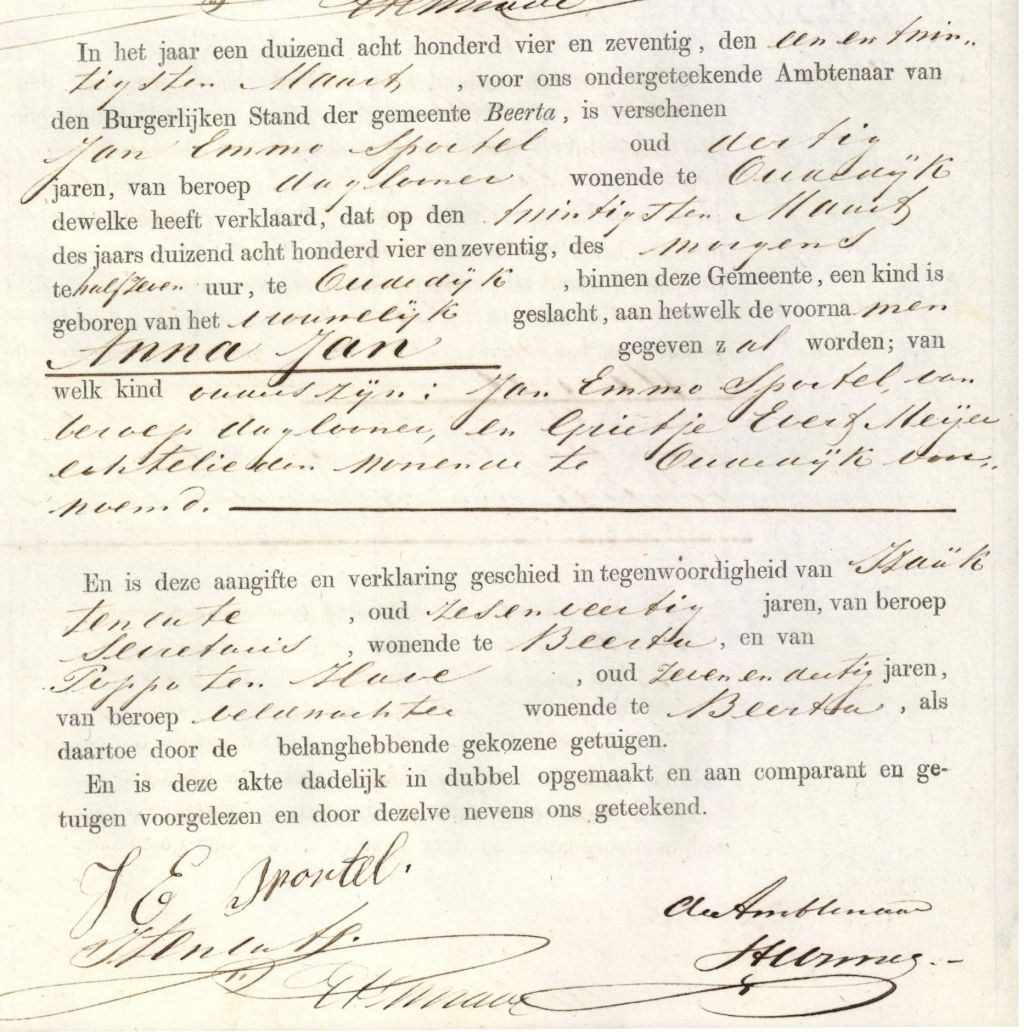 In het jaar een duizend acht honderd vier en zeventig, den een en twin-
tigsten Maart, voor ons ondergeteekende Ambtenaar van
den Burgerlijken Stand der gemeente Beerta, is verschenen
Jan Emmo Sportel oud dertig
jaren, van beroep daglooner wonende te Oudedijk
dewelke heeft verklaard, dat op den twintigsten Maart
des jaars duizend acht honderd vier en zeventig, des morgens
te half zeven uur, te Oudedijk, binnen deze Gemeente, een kind is
geboren van het vrouwelijk geslacht, aan hetwelk de voornamen
Anna Jan gegeven zal worden; van
welk kind ouders zijn: Jan Emmo Sportel, van
beroep daglooner, en Grietje Evert Meijer
echtelieden wonende te Oudedijk voor-
noemd.
En is deze aangifte en verklaring geschied in tegenwoordigheid van
ten Cate, oud zesenveertig jaren, van beroep
Secretaris, wonende te Beerta, en van
Poppo ten Have, oud zeven en dertig jaren,
van beroep veldwachter wonende te Beerta, als
daartoe door de belanghebbende gekozene getuigen.
En is deze akte dadelijk in dubbel opgemaakt en aan comparant en ge-
tuigen voorgelezen en door dezelve nevens ons geteekend.
J E Sportel.
de Ambtenaar
H ten Cate.